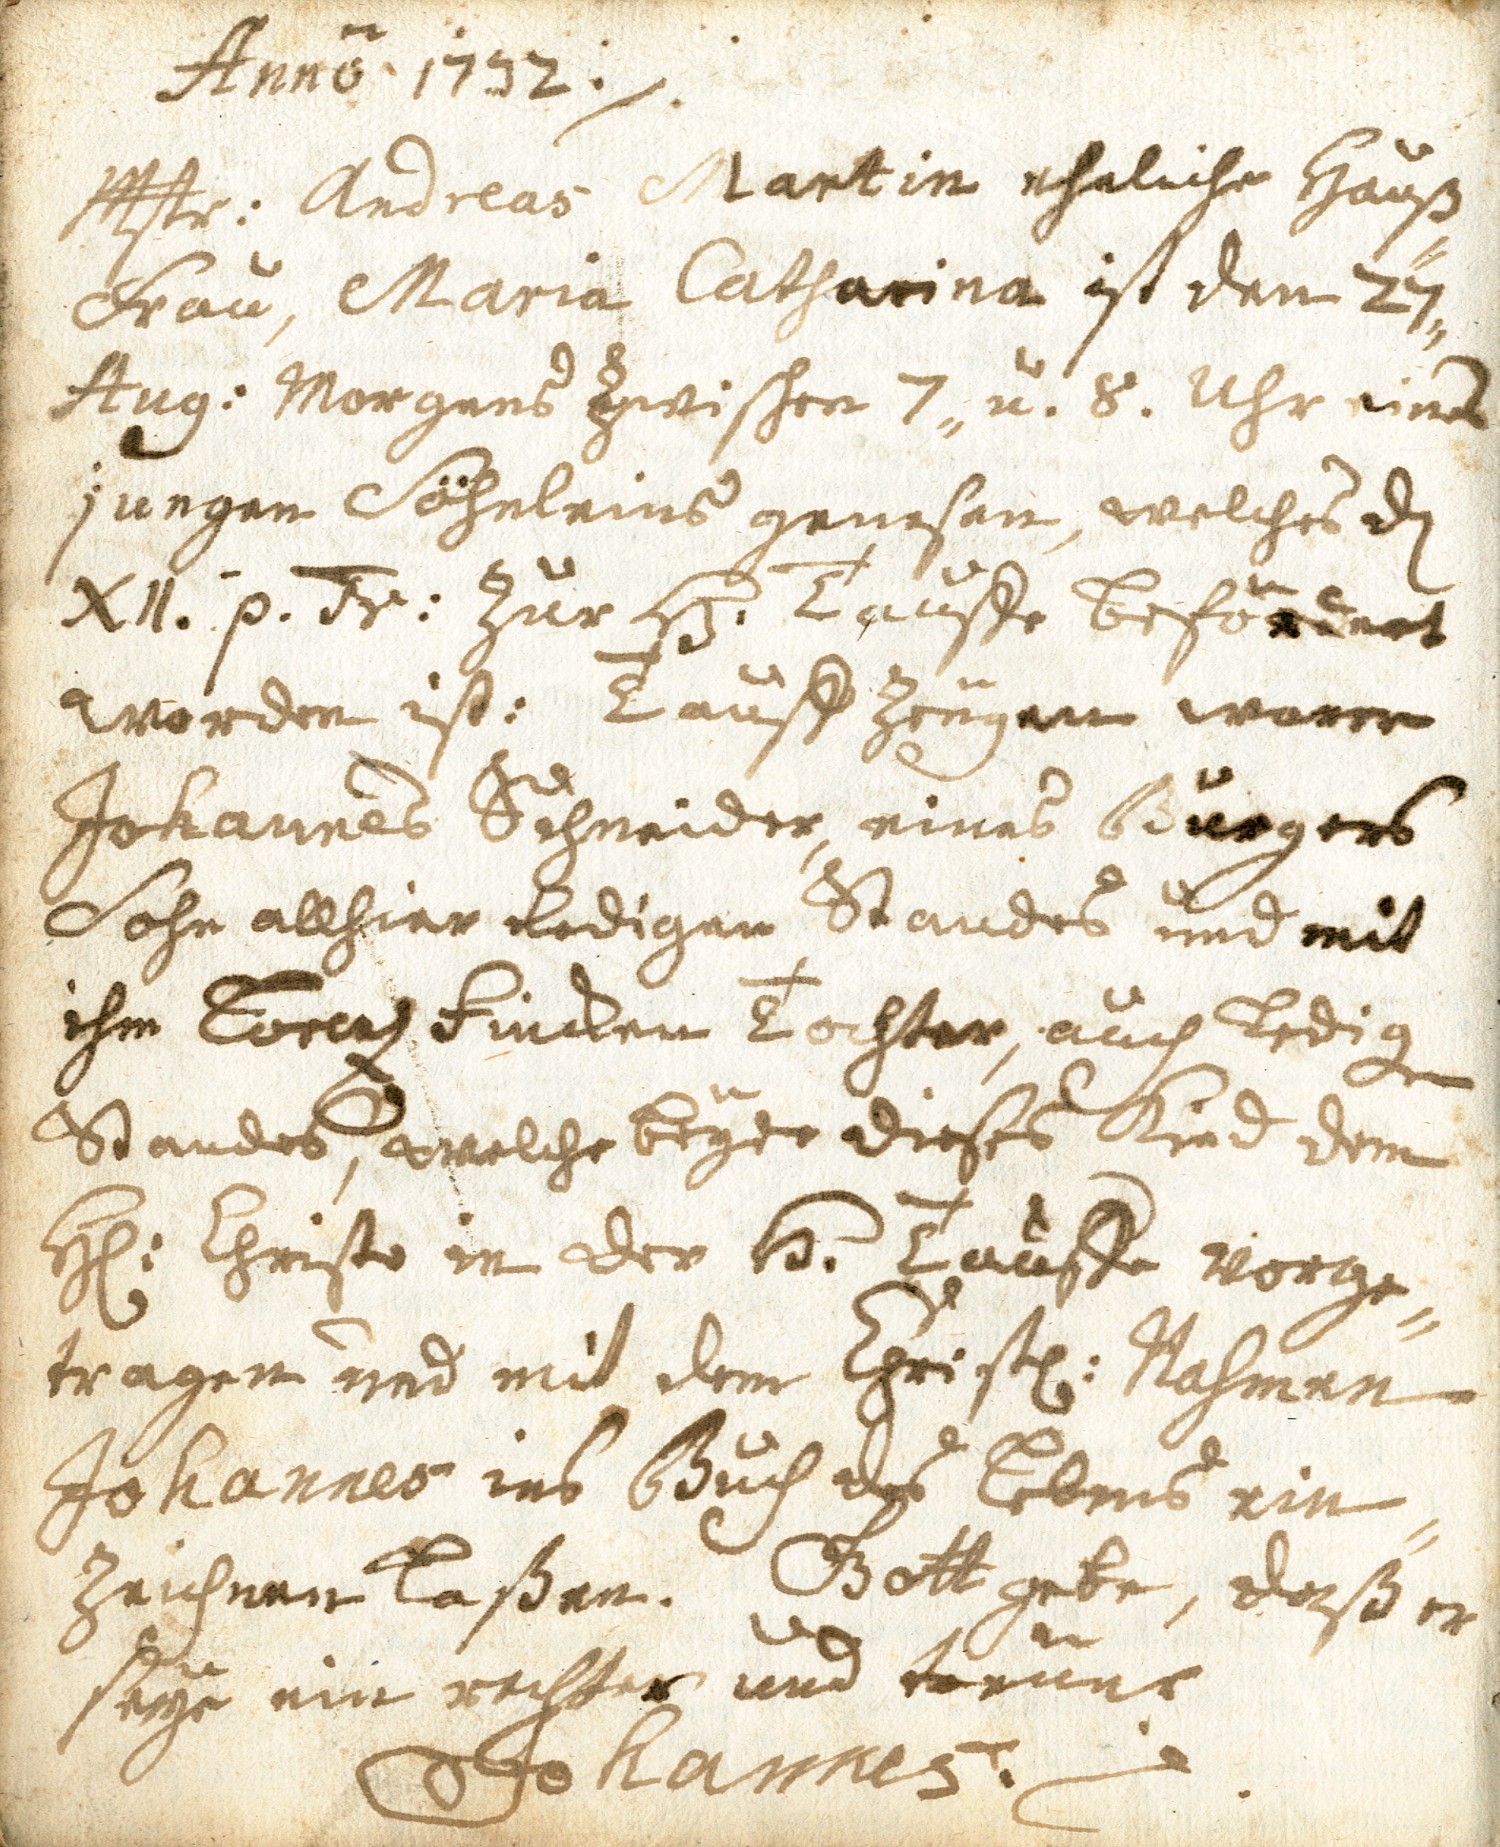 Anno 1732.
Mstr: Andreas Martin eheliche Hauß„
Frau, Maria Catharina ist den 27„
Aug: Morgens Zwischen 7„ u. 8. Uhr eines
jungen Söhnleins genesen, welches d
XII. p. Tr: Zur H. Tauffe befördert
worden ist: Tauff Zeugen waren
Johannes Schneider, eines Burgers
Sohn allhier ledigen Standes und mit
ihm Lorenz Tochter, auch ledigen
Standes, welche beyde dieses Kind dem
H: Christo in der H. Tauffe vorge„
tragen und mit dem Christl: Nahmen
Johannes ins Buch des Lebens ein„
Zeichnen laßen. Gott gebe, daß er
seye ein rechter und treuer
Johannes.